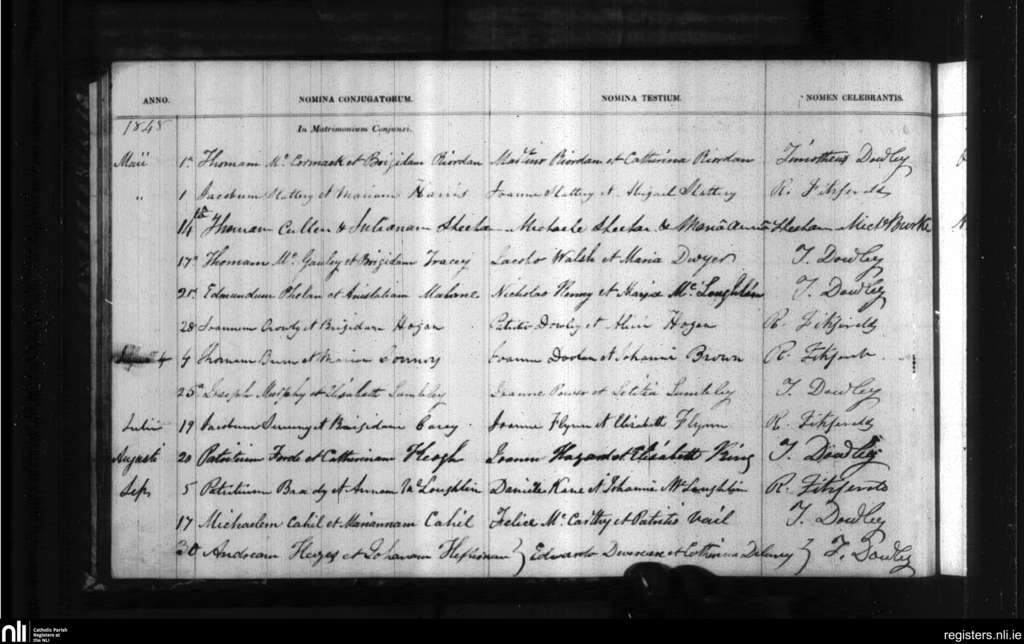 ANNO. NOMINA CONJUGATORUM. NOMINA TESTIUM. NOMEN CELEBRANTIS.
1848 In Matrimonium Conjunxi.
Maii 1a Thomam Mc Cormack et Brigidam Riordan Martino Riordan et Catherina Riordan Timotheus Dowley
" 1 Jacobum Slattery et Mariam Harris Joanne Slattery et Abigail Slattery R. Fitzgerald
14th Thomam Cullen & Julianam Sheehan Michaele Sheehan & Maria Anna Meehan Michl Burke
17a Thomam Mc Gauley et Brigidam Tracey Jacobo Walsh et Maria Dwyer T. Dowley
21a Edmundum Phelan et Anistatiam Nicholao et Mc Loughlin T. Dowley
28 Joannem et Brigidam Hogan Patritio Dowley et Alicia Hogan R. Fitzgerald
4 Thomam et Mariam Joanne et Johanna Brown R. Fitzgerald
25a Joseph Murphy et Elisabeth Lumbley Joanne Power et Letitia Lumbley T. Dowley
Julii 19 Jacobum et Brigidam Carey Joanne Flynn et Elizabeth Flynn R. Fitzgerald
Augusti 20 Patritium Forde et Catherinam Keogh Joanne et Elisabeth King T. Dowley
Sep 5 Patritium Brady et Annam McLoughlin Daniele Kane et Johanna McLoughlin R. Fitzgerald
17 Michaelem Cahil et Mariannam Cahil Felice Mc Carthy et Patritio Vail T. Dowley
30 Andream Hayes et Johannam Heffernan } Edwardo Devereux et Catherina Delaney } T. Dowley
nli Catholic Parish Registers at the NLI
registers.nli.ie